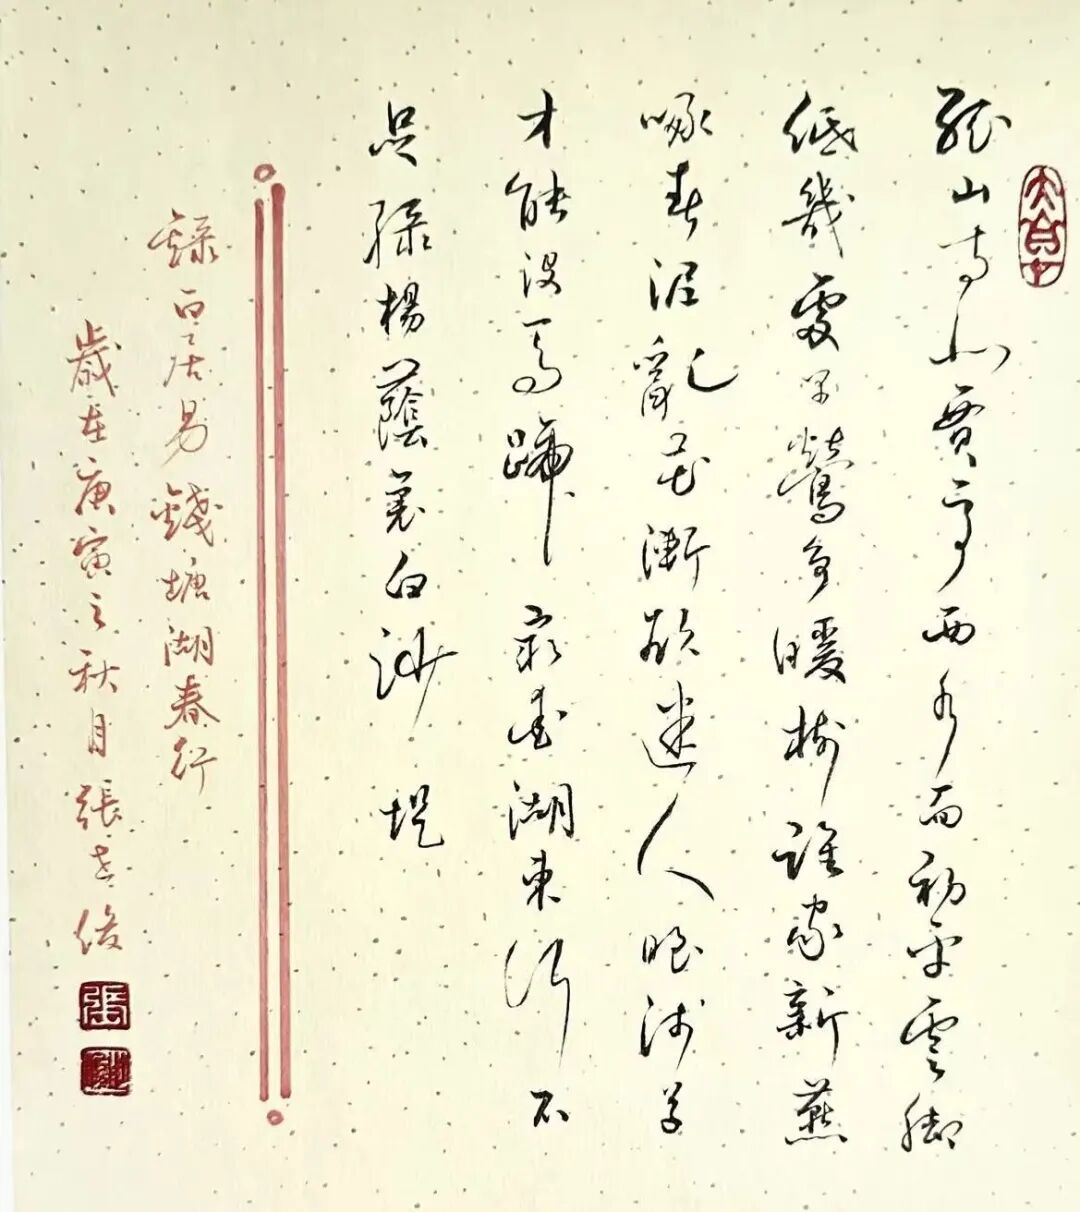 孤山寺北賈亭西水面初平雲脚
低幾處早鶯爭暖樹誰家新燕
啄春泥亂花漸欲迷人眼淺草
才能没馬蹄最愛湖東行不
足綠楊蔭裏白沙堤
錄白居易錢塘湖春行
歲在庚寅之秋月張俊